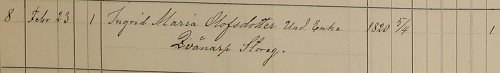 8 Febr 23 1 Ingrid Maria Olofsdotter Und. Enka 1820 5/4 1
Qvänarp Storeg.